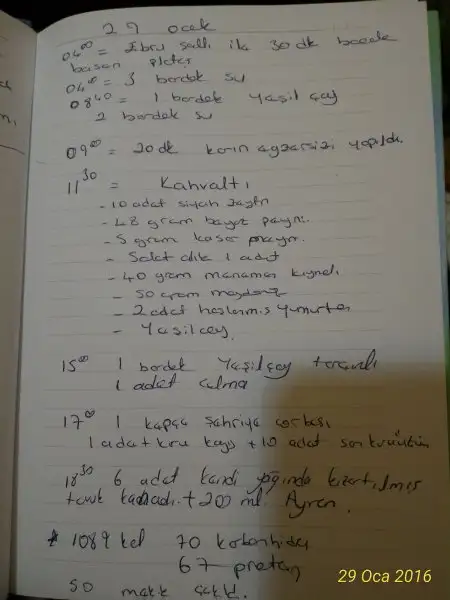 29 ocak
04⁰⁰ = Ebru Şallı ile 30 dk bacak
basen plates
04⁴⁰ = 3 bardak su
08⁴⁰ = 1 bardak yeşil çay
2 bardak su
09⁰⁰ = 20 dk karın egzersizi yapıldı
11³⁰ = Kahvaltı
- 10 adet siyah zeytin
- 48 gram beyaz peyni.
- 5 gram kaşar peynr.
- Salatalık 1 adet
- 40 gram menemen kıymalı
- 50 gram maydanoz
- 2 adet haşlanmış yumurta
- Yeşil çay.
15⁰⁰ 1 bardak Yeşilçay tarçınlı
1 adet elma
17⁰⁰ 1 kepçe şehriye çorbası
1 adet kuru kayısı + 10 adet sarı
18³⁰ 6 adet kendi yağında kızartılmış
tavuk + 200 ml. Ayran.
* 1089 kcl 70 karbonhidra
67 protein
50
29 Oca 2016